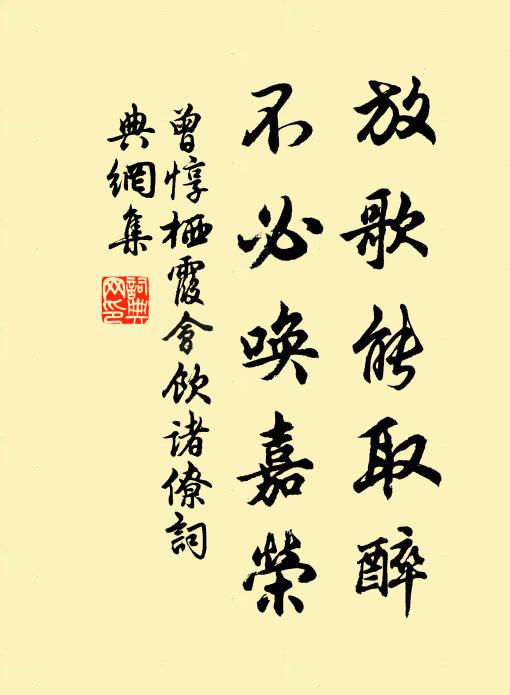 放歌能取醉
不必唤嘉榮
曾惇栖霞會飲诸僚詞
典網集
詞典
网印